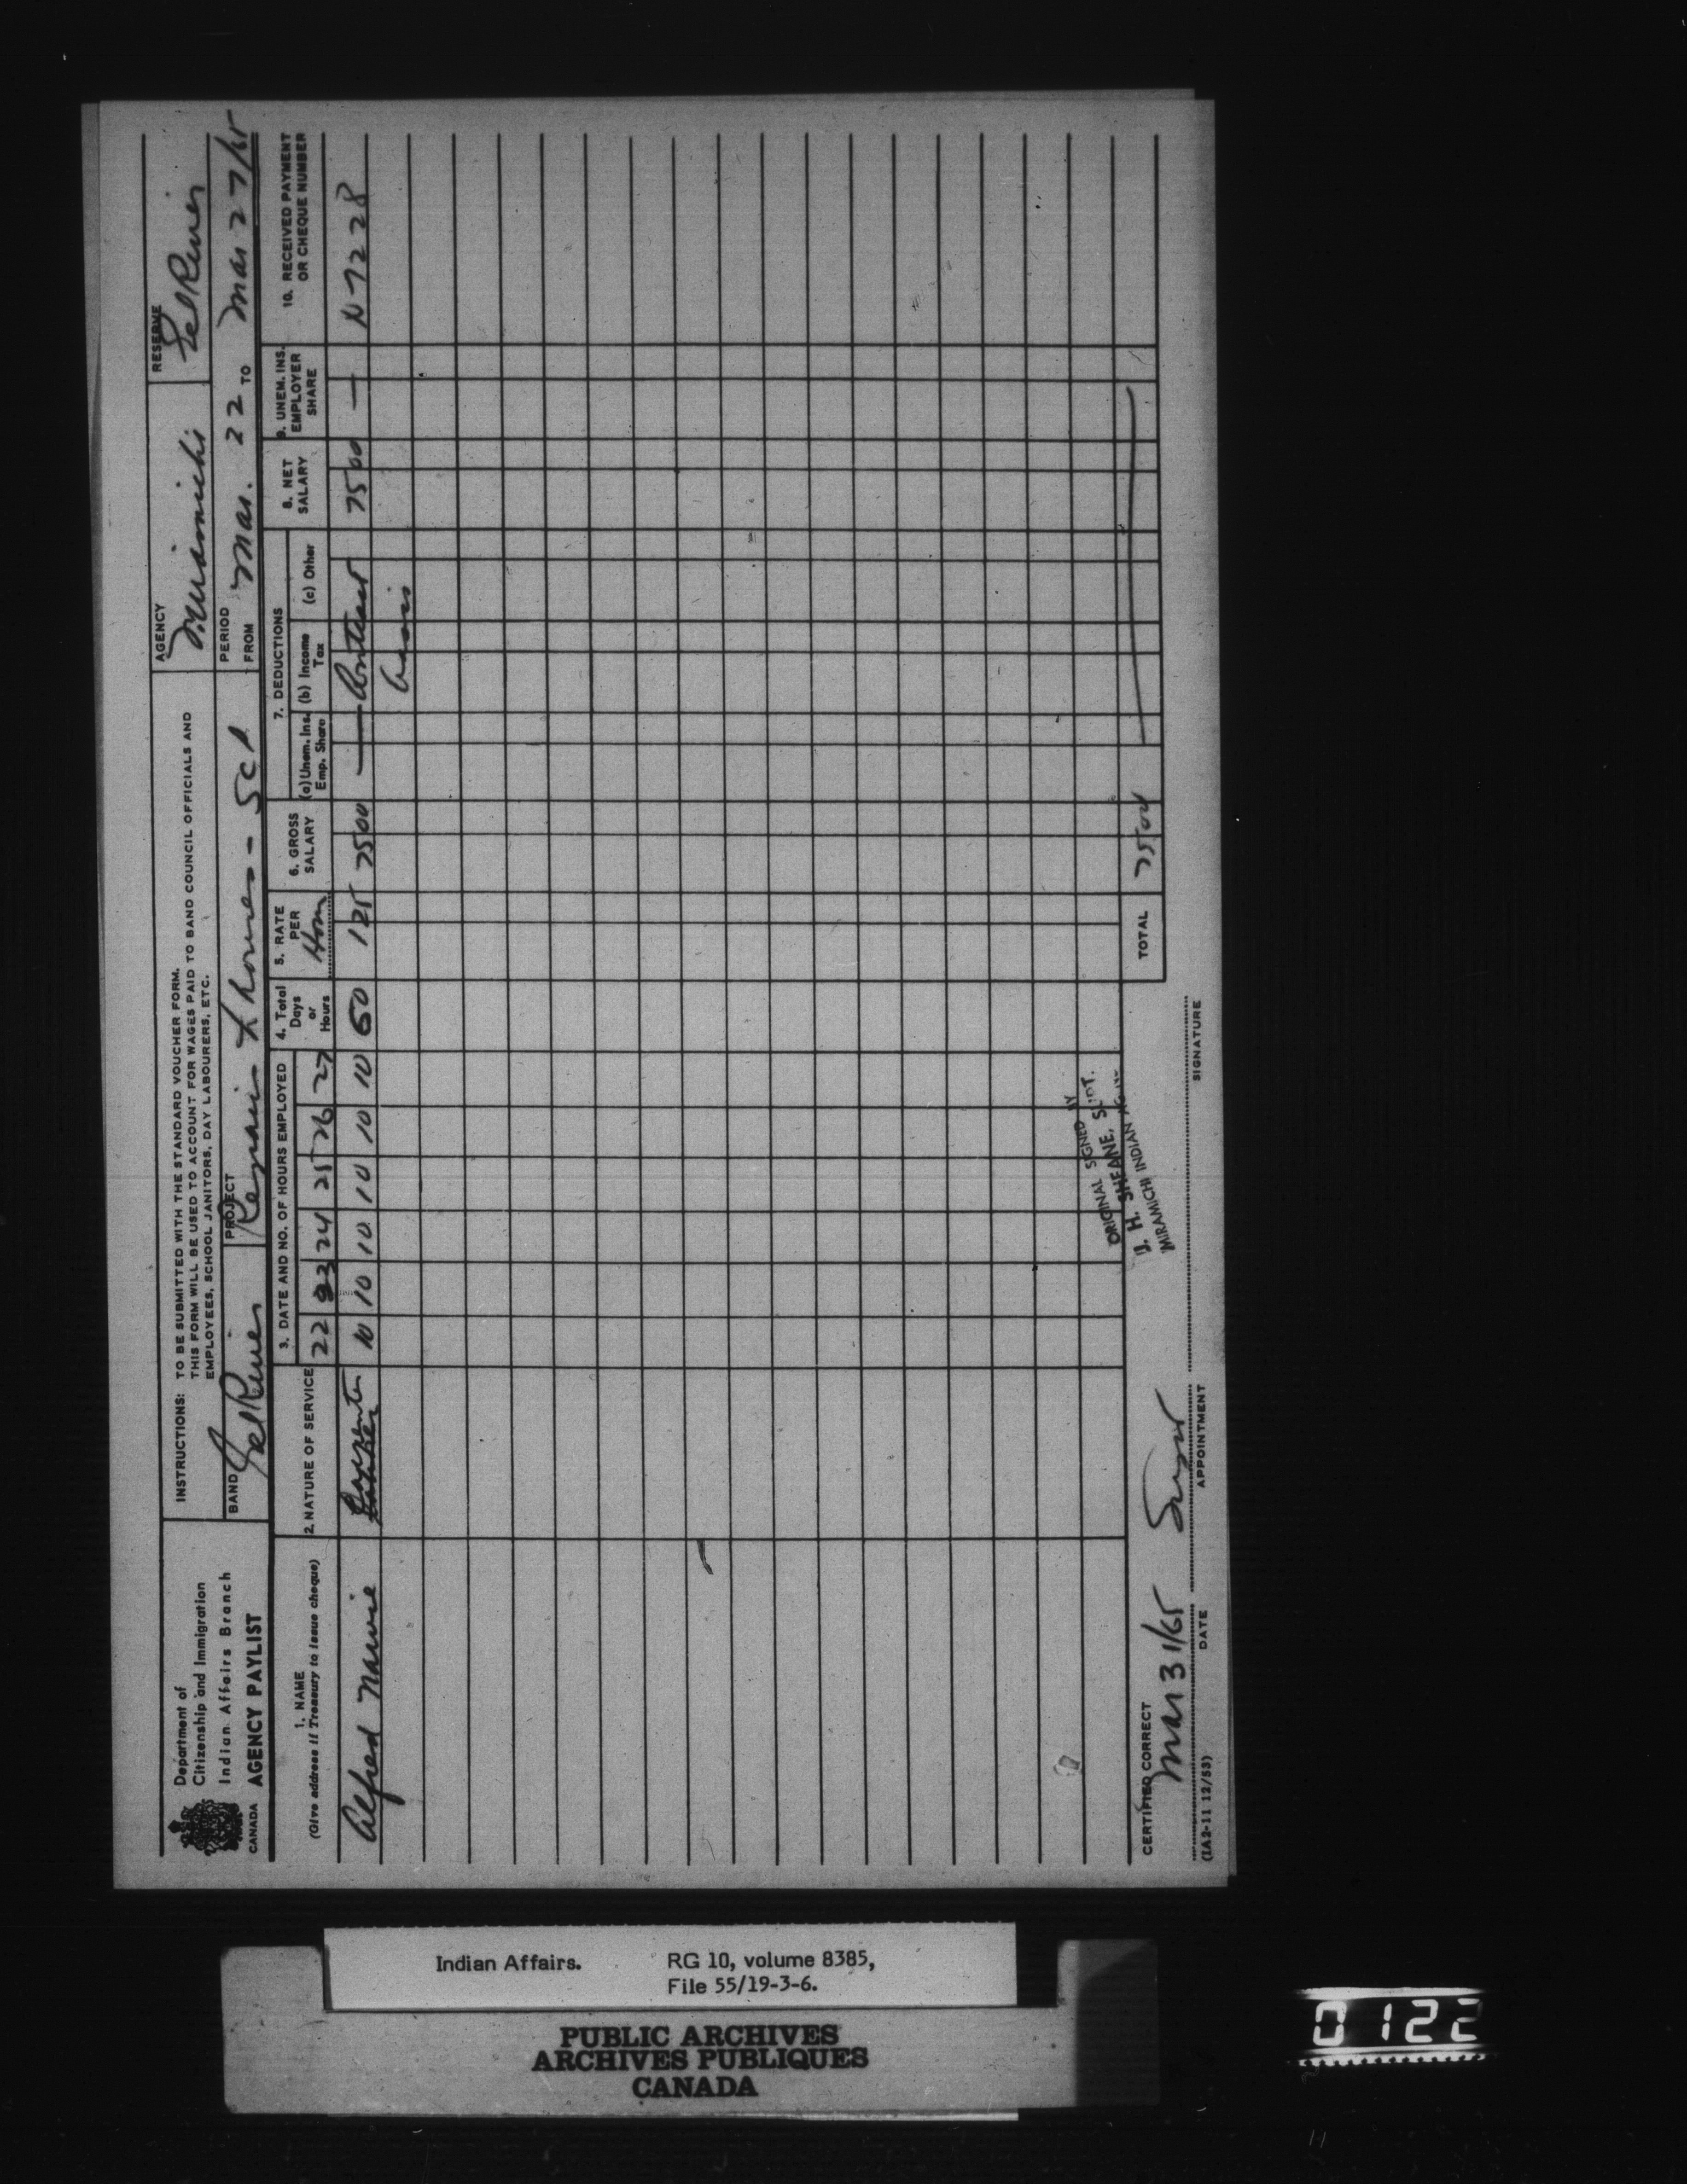 Department of
Citizenship and Immigration
Indian Affairs Branch
CANADA AGENCY PAYLIST
INSTRUCTIONS: TO BE SUBMITTED WITH THE STANDARD VOUCHER FORM.
THIS FORM WILL BE USED TO ACCOUNT FOR WAGES PAID TO BAND COUNCIL OFFICIALS AND
EMPLOYEES, SCHOOL JANITORS, DAY LABOURERS, ETC.
AGENCY Miramichi
RESERVE Eel River
BAND Eel River
PROJECT Repairs homes -
PERIOD FROM Mar. 22 TO Mar 27/65
1. NAME
(Give address if Treasury to issue cheque)
2. NATURE OF SERVICE
3. DATE AND NO. OF HOURS EMPLOYED
22 23 24 25 26 27
4. Total Days or Hours
5. RATE PER Hour
6. GROSS SALARY
7. DEDUCTIONS
(a) Unem. Ins. Emp. Share
(b) Income Tax
(c) Other
8. NET SALARY
9. UNEM. INS. EMPLOYER SHARE
10. RECEIVED PAYMENT OR CHEQUE NUMBER
Alfred Narvie Carpenter 10 10 10 10 10 10 60 125 7500 — Contract 7500 — N 7228
basis
TOTAL 7500
ORIGINAL SIGNED BY
J. H. SHEANE, SUPT.
MIRAMICHI INDIAN AGENCY
CERTIFIED CORRECT
Mar 31/65 Supt
DATE APPOINTMENT SIGNATURE
(IA2-11 12/53)
Indian Affairs. RG 10, volume 8385,
File 55/19-3-6.
PUBLIC ARCHIVES
ARCHIVES PUBLIQUES
CANADA
0122